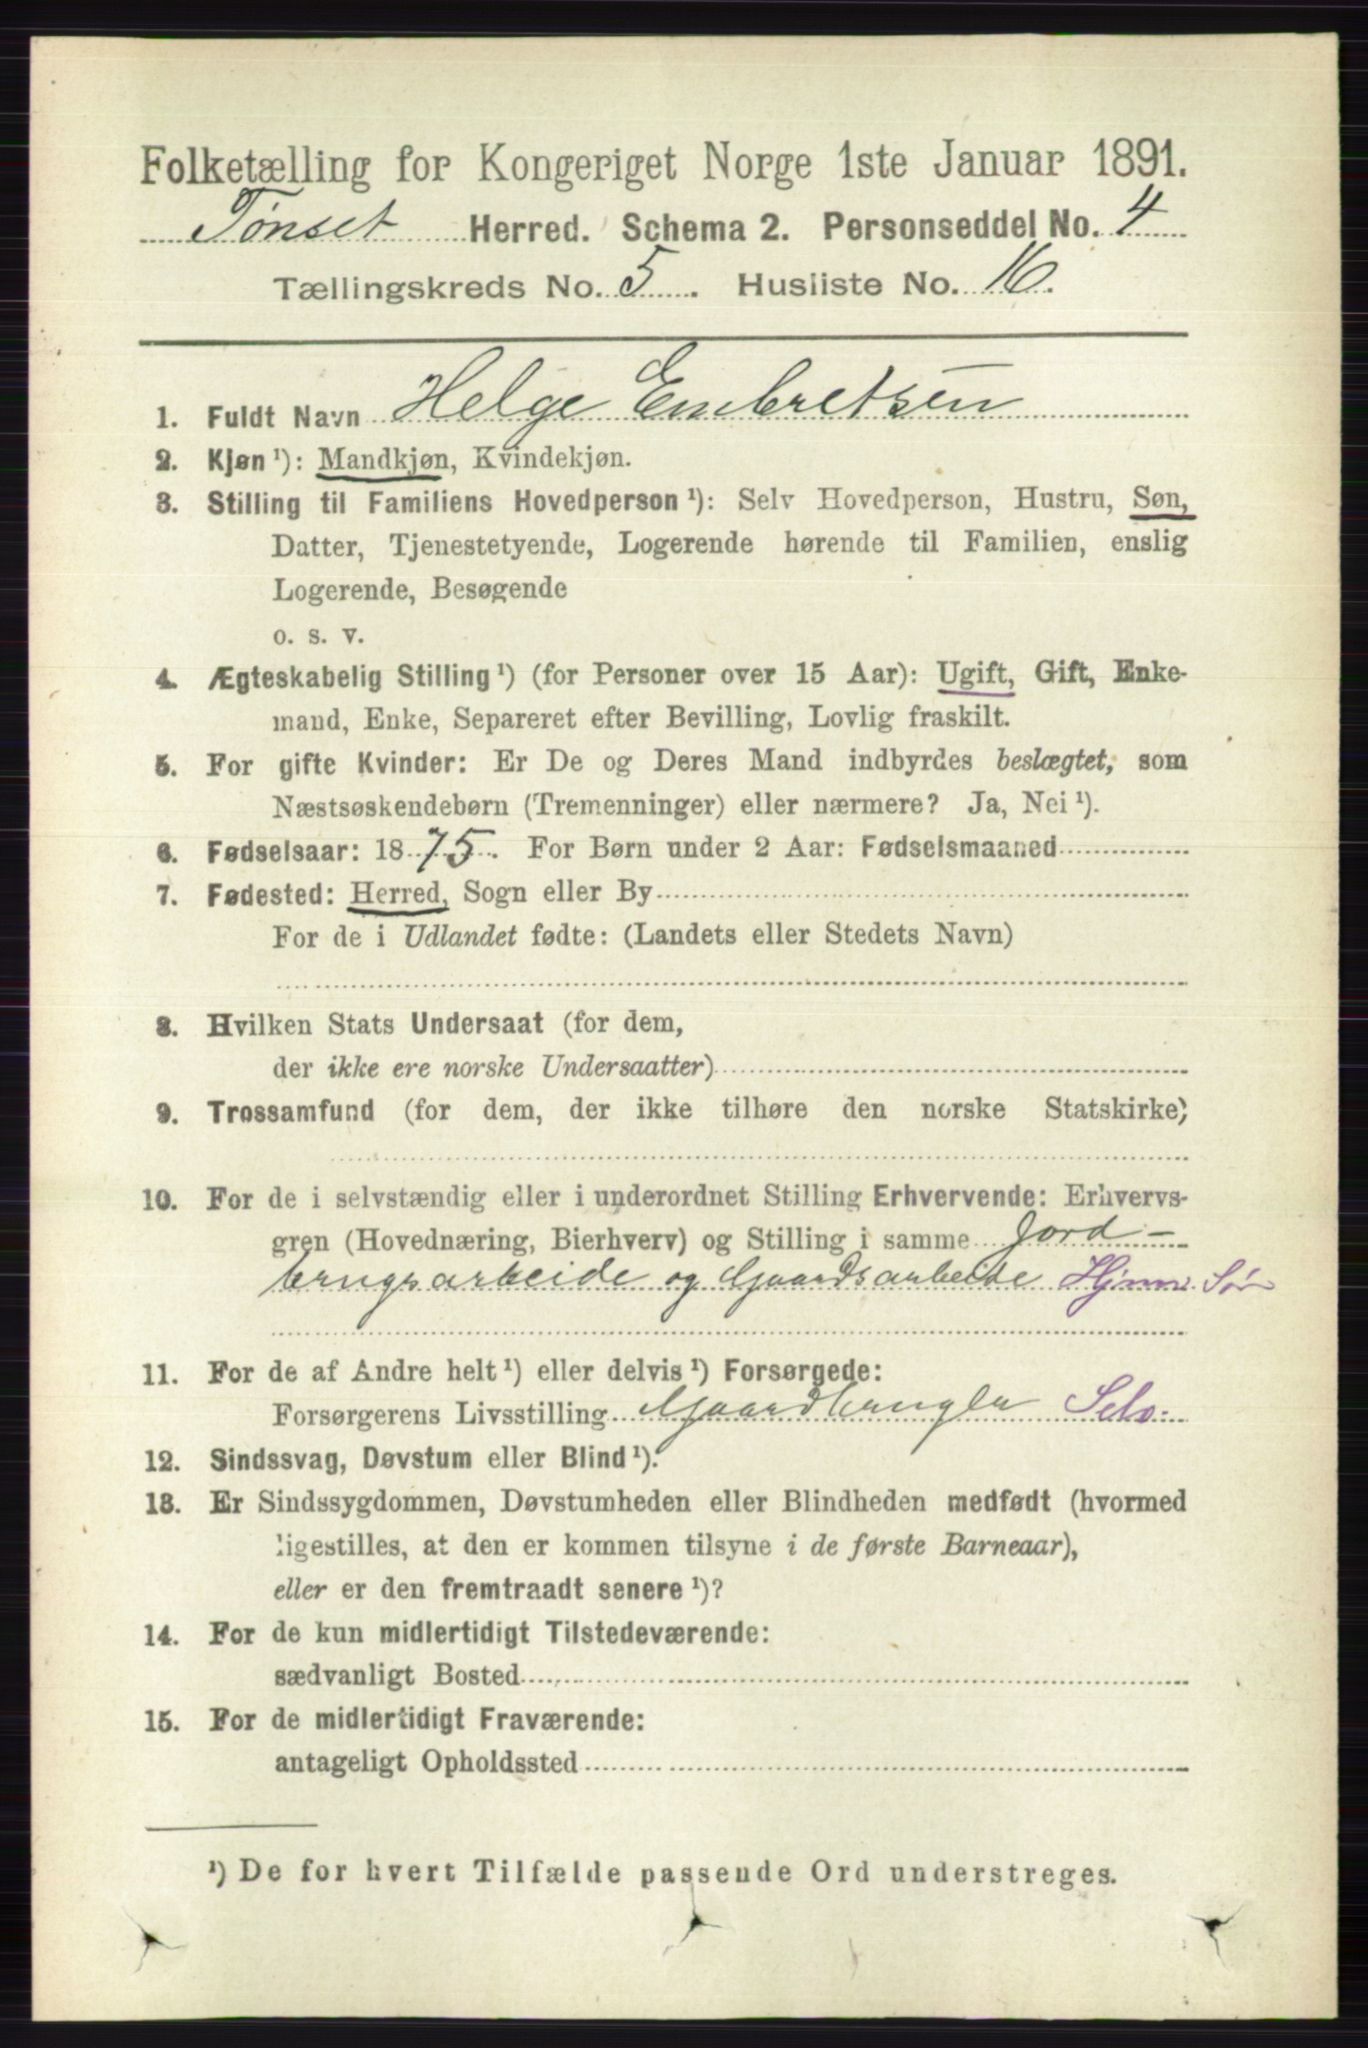 Folketælling for Kongeriget Norge 1ste Januar 1891.
Tønset Herred. Schema 2. Personseddel No. 4
Tællingskreds No. 5. Husliste No. 16.
1. Fuldt Navn Helge Embretsen
2. Kjøn ¹): Mandkjøn, Kvindekjøn.
3. Stilling til Familiens Hovedperson ¹): Selv Hovedperson, Hustru, Søn,
Datter, Tjenestetyende, Logerende hørende til Familien, enslig
Logerende, Besøgende
o. s. v.
4. Ægteskabelig Stilling ¹) (for Personer over 15 Aar): Ugift, Gift, Enke-
mand, Enke, Separeret efter Bevilling, Lovlig fraskilt.
5. For gifte Kvinder: Er De og Deres Mand indbyrdes beslægtet, som
Næstsøskendebørn (Tremenninger) eller nærmere? Ja, Nei ¹).
6. Fødselsaar: 1875. For Børn under 2 Aar: Fødselsmaaned
7. Fødested: Herred, Sogn eller By
For de i Udlandet fødte: (Landets eller Stedets Navn)
8. Hvilken Stats Undersaat (for dem,
der ikke ere norske Undersaatter)
9. Trossamfund (for dem, der ikke tilhøre den norske Statskirke)
10. For de i selvstændig eller i underordnet Stilling Erhvervende: Erhvervs-
gren (Hovednæring, Bierhverv) og Stilling i samme Jord-
brugsarbeide og Gaardsarbeide Hjmv. Søn
11. For de af Andre helt ¹) eller delvis ¹) Forsørgede:
Forsørgerens Livsstilling Gaardbruger Selv.
12. Sindssvag, Døvstum eller Blind ¹).
13. Er Sindssygdommen, Døvstumheden eller Blindheden medfødt (hvormed
ligestilles, at den er kommen tilsyne i de første Barneaar),
eller er den fremtraadt senere ¹)?
14. For de kun midlertidigt Tilstedeværende:
sædvanligt Bosted
15. For de midlertidigt Fraværende:
antageligt Opholdssted
¹) De for hvert Tilfælde passende Ord understreges.